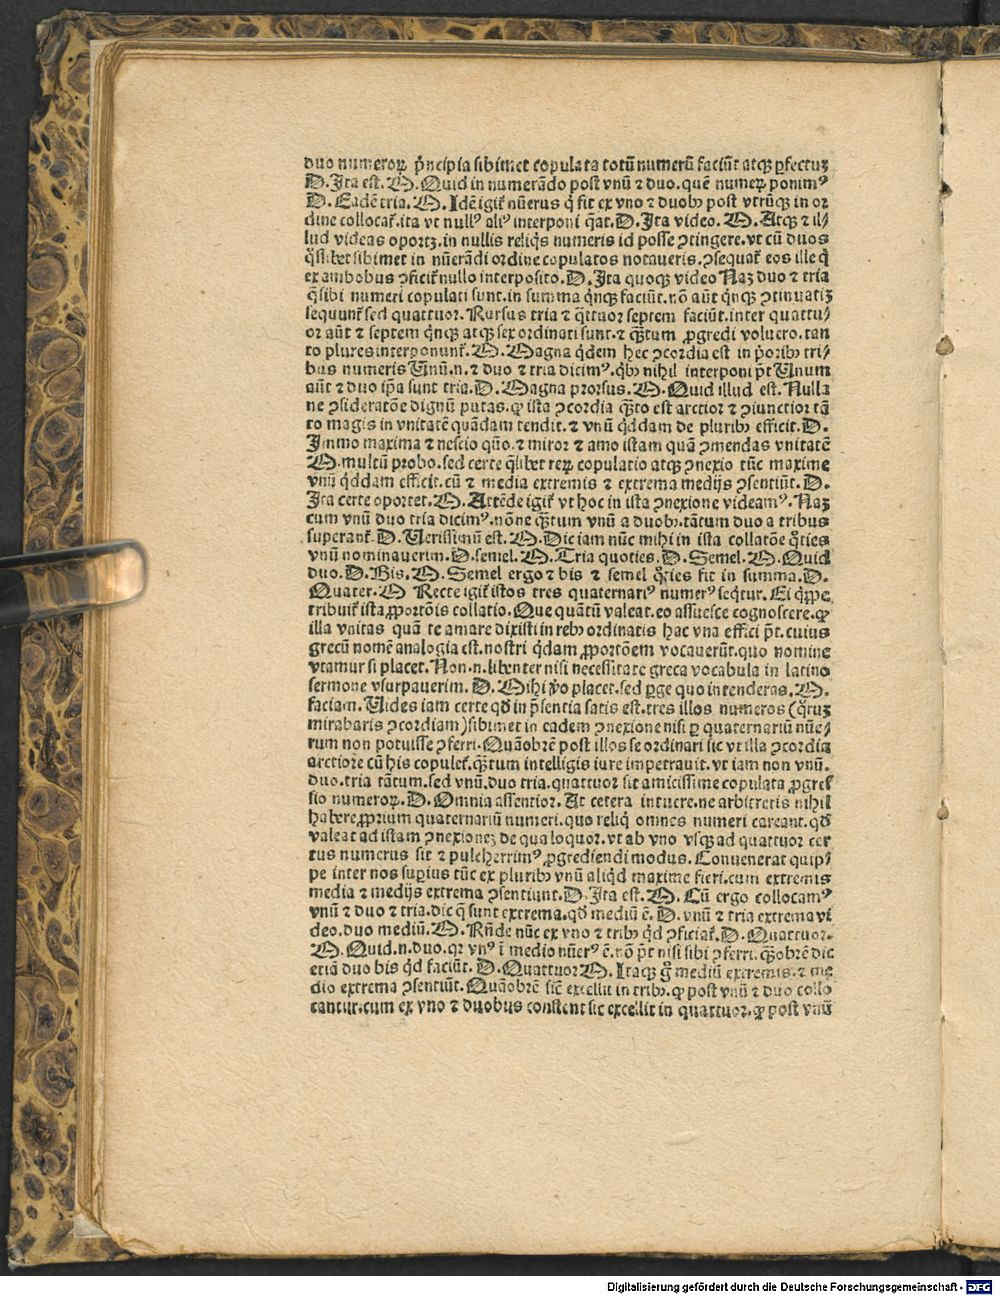 duo numeroꝝ p̄ncipia sibimet copulata totū numerū faciūt atqꝫ ꝑfectuꝫ
D. Ita est. M. Quid in numerādo post vnū ⁊ duo. quē numeꝝ ponimꝰ
D. Eadē tria. M. Idē igit̄ nūerus q̇ fit ex vno ⁊ duobꝫ post vtrūqꝫ in or
dine collocat̄. ita vt nullꝰ aliꝰ interponi q̄at. D. Ita video. M. Atqꝫ ⁊ il/
lud videas oportꝫ. in nullis reliq̇s numeris id posse ꝯtingere. vt cū duos
q̄slibet sibimet in nūerādi ordine copulatos notaueris. ꝯsequat̄ eos ille q̇
ex ambobus ꝯficit̄ nullo interposito. D. Ita quoqꝫ video Naꝫ duo ⁊ tria
q̄ sibi numeri copulati sunt. in summa q̇nqꝫ faciūt. nō aūt q̇nqꝫ ꝯtinuatiꝫ
sequunt̄ sed quattuor. Rursus tria ⁊ q̄ttuor septem faciūt. inter quattu/
or aūt ⁊ septem q̇nqꝫ atqꝫ sex ordinati sunt. ⁊ qꝫ̄tum ꝓgredi voluero. tan
to plures interponunt̄. M. Magna q̇dem hec ꝯcordia est in p̄oribꝫ tri/
bus numeris Unū .n. ⁊ duo ⁊ tria dicimꝰ. q̇bꝫ nihil interponi pt̄ Unum
aūt ⁊ duo ip̄a sunt tria. D. Magna prorsus. M. Quid illud est. Nulla
ne ꝯsideratōe dignū putas. ꝙ ista ꝯcordia qꝫ̄to est arctior ⁊ ꝯiunctior tā
to magis in vnitatē quādam tendit. ⁊ vnū q̇ddam de pluribꝫ efficit. D.
Immo maxima ⁊ nescio quō. ⁊ miror ⁊ amo istam quā ꝯmendas vnitatē
M. multū probo. sed certe q̄libet reꝝ copulatio atqꝫ ꝯnexio tūc maxime
vnū q̇ddam efficit. cū ⁊ media extremis ⁊ extrema medijs ꝯsentiūt. D.
Ita certe oportet. M. Attēde igit̄ vt hoc in ista ꝯnexione videamꝰ. Naꝫ
cum vnū duo tria dicimꝰ. nōne qꝫ̄tum vnū a duobꝫ. tātum duo a tribus
superant̄. D. Uerissimū est. M. Dic iam nūc mihi in ista collatōe q̇ties
vnū nominauerim. D. semel. M. Tria quoties. D. Semel. M. Quid
duo. D. Bis. M. Semel ergo ⁊ bis ⁊ semel q̇ties fit in summa. D.
Quater. M. Recte igit̄ istos tres quaternariꝰ numerꝰ seq̇tur. Ei q̇ppe
tribuit̄ ista ꝓportōis collatio. Que quātū valeat. eo assuesce cognoscere. ꝙ
illa vnitas quā te amare dixisti in rebꝫ ordinatis hac vna effici pt̄. cuius
grecū nomē analogia est. nostri q̇dam ꝓportōem vocauerūt. quo nomine
vtamur si placet. Non .n. libenter nisi necessitate greca vocabula in latino
sermone vsurpauerim. D. Mihi v̊o placet. sed ꝑge quo intenderas. M.
faciam. Uides iam certe qd̄ in p̄sentia satis est. tres illos numeros (q̇ruꝫ
mirabaris ꝯcordiam) sibimet in eadem ꝯnexione nisi ꝑ quaternariū nūe/
rum non potuisse ꝯferri. Quāobrē post illos se ordinari sic vt illa ꝯcordia
arctiore cū his copulet̄. qꝫ̄tum intelligis iure impetrauit. vt iam non vnū.
duo. tria tātum. sed vnū. duo tria. quattuor sit amicissime copulata ꝓgres
sio numeroꝝ. D. Omnia assentior. M. At cetera intuere. ne arbitreris nihil
habere ꝓprium quaternariū numeri. quo reliq̇ omnes numeri careant. qd̄
valeat ad istam ꝯnexioneꝫ de qua loquor. vt ab vno vsqꝫ ad quattuor cer
tus numerus sit ⁊ pulcherrimꝰ ꝓgrediendi modus. Conuenerat quip/
pe inter nos suꝑius tūc ex pluribꝫ vnū aliq̇d maxime fieri. cum extremis
media ⁊ medijs extrema ꝯsentiunt. D. Ita est. M. Cū ergo collocamꝰ
vnū ⁊ duo ⁊ tria. dic q̄ sunt extrema. qd̄ mediū ē. D. vnū ⁊ tria extrema vi
deo. duo mediū. M. Rn̄de nūc ex vno ⁊ tribꝫ q̇d ꝯficiat̄. D. Quattuor.
M. Quid .n. duo. qr vnꝰ ī medio nūerꝰ ē. nō pt̄ nisi sibi ꝯferri. Qꝫ̄obrē dic
etiā duo bis q̇d faciūt. D. Quattuor M. Itaqꝫ g̊ mediū extremis. ⁊ me
dio extrema ꝯsentiūt. Quāobrē sic̄ excellit in tribꝫ. ꝙ post vnū ⁊ duo collo
cantur. cum ex vno ⁊ duobus constent sic excellit in quattuor. ꝙ post vnū
Digitalisierung gefördert durch die Deutsche Forschungsgemeinschaft - DFG